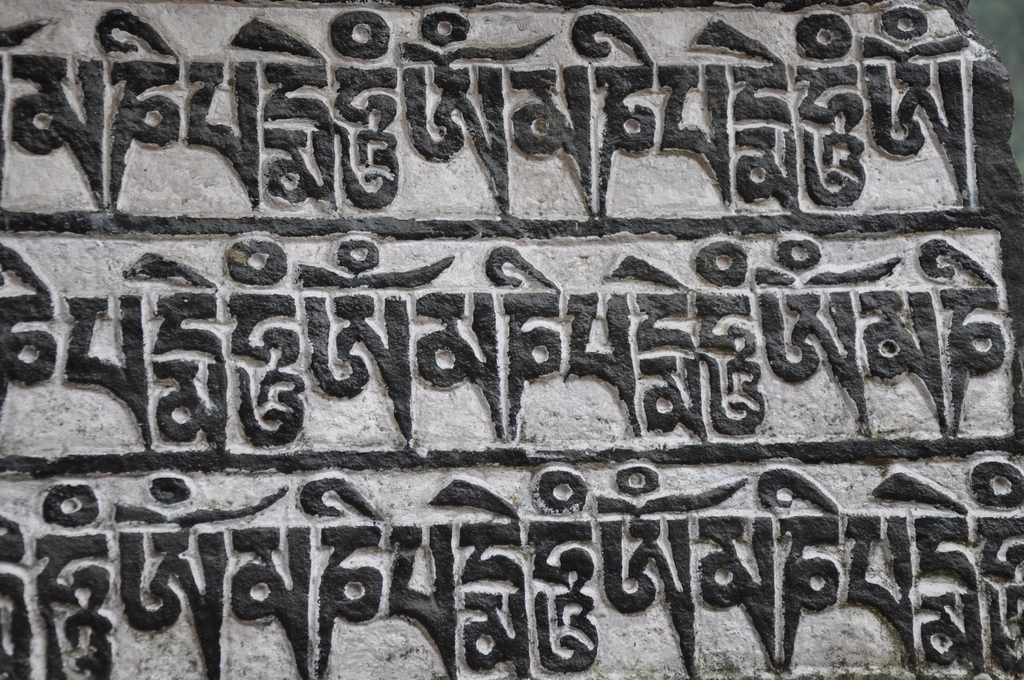 མཎིཔདྨེཧཱུཾཨོཾམཎིཔདྨེཧཱུཾཨོཾ
ཎིཔདྨེཧཱུཾཨོཾམཎིཔདྨེཧཱུཾཨོཾམཎི
ཧཱུཾཨོཾམཎིཔདྨེཧཱུཾཨོཾམཎིཔདྨེཧཱུཾ